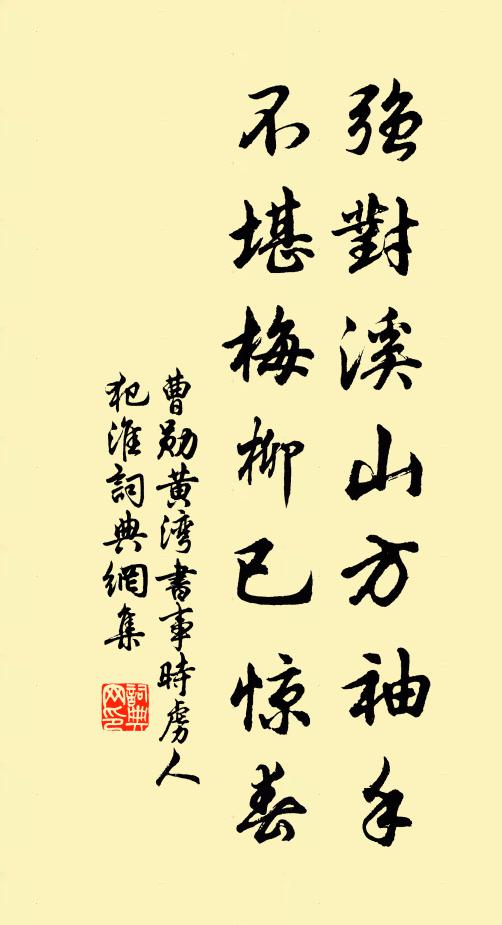 強對溪山方袖手
不堪梅柳已惊春
曹勋黄湾書事時虜人
犯淮詞典網集
詞典网印